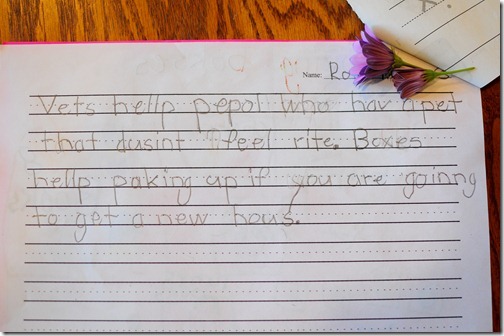 Name: Ro
Vets hellp pepol who hav a pet
that dusint feel rite. Boxes
hellp paking up if you are goinng
to get a new hous.